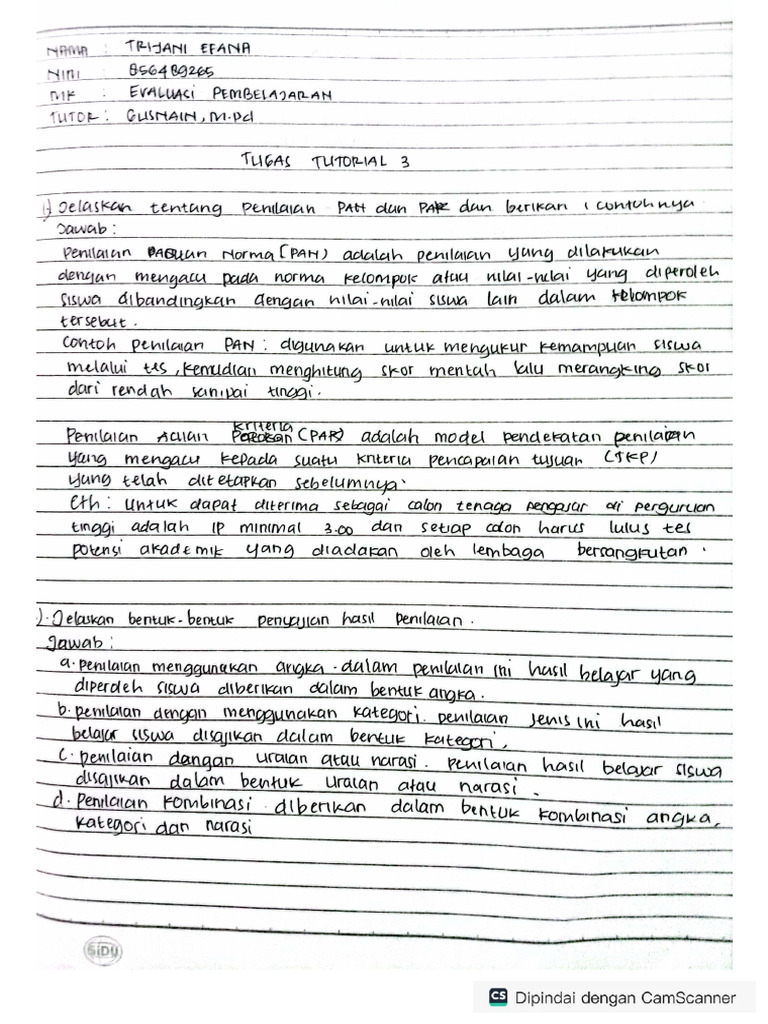 NAMA : TRIJANI EFANA
NIM : 856489265
MK : EVALUASI PEMBELAJARAN
TUTOR : GUSNAIN, M.Pd
TUGAS TUTORIAL 3
1) Jelaskan tentang penilaian PAN dan PAK dan berikan 1 contohnya
Jawab :
Penilaian Norma (PAN) adalah penilaian yang dilakukan
dengan mengacu pada norma kelompok atau nilai-nilai yang diperoleh
siswa dibandingkan dengan nilai-nilai siswa lain dalam kelompok
tersebut.
Contoh penilaian PAN : digunakan untuk mengukur kemampuan siswa
melalui tes, kemudian menghitung skor mentah lalu merangking skor
dari rendah sampai tinggi.
Kriteria
Penilaian Acuan Patokan (PAP) adalah model pendekatan penilaian
yang mengacu kepada suatu kriteria pencapaian tujuan (TKP)
yang telah ditetapkan sebelumnya.
Cth : untuk dapat diterima sebagai calon tenaga pengajar di perguruan
tinggi adalah IP minimal 3.00 dan setiap calon harus lulus tes
potensi akademik yang diadakan oleh lembaga bersangkutan.
). Jelaskan bentuk-bentuk penyajian hasil penilaian.
Jawab :
a. penilaian menggunakan angka. dalam penilaian ini hasil belajar yang
diperoleh siswa diberikan dalam bentuk angka.
b. penilaian dengan menggunakan kategori. penilaian jenis ini hasil
belajar siswa disajikan dalam bentuk kategori,
c. penilaian dangan uraian atau narasi. penilaian hasil belajar siswa
disajikan dalam bentuk uraian atau narasi.
d. Penilaian kombinasi. diberikan dalam bentuk kombinasi angka,
kategori dan narasi
SiDU
CS Dipindai dengan CamScanner